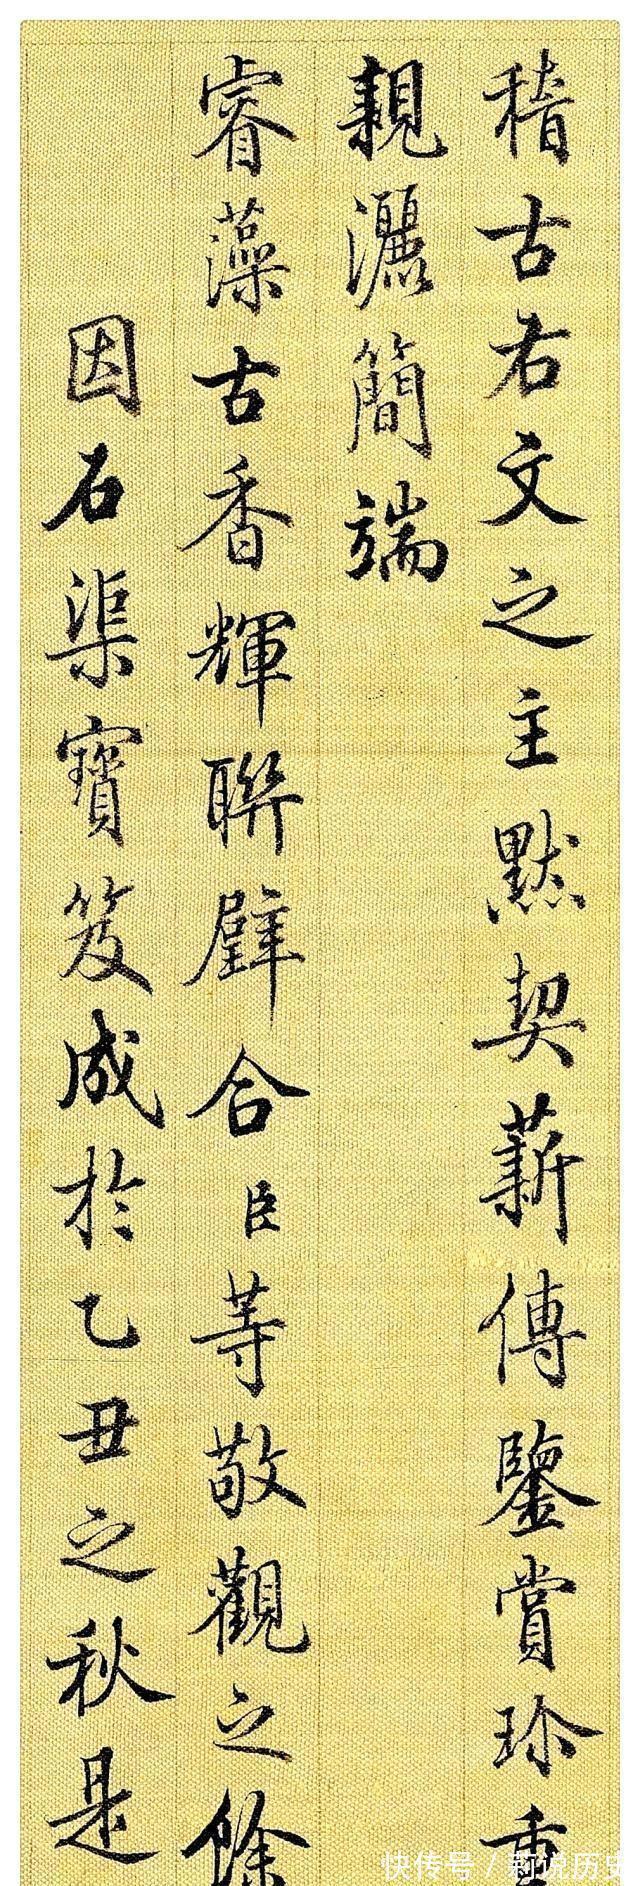 稽古右文之主默契薪傳鑒賞珍重
親灑簡端
睿藻古香輝聯璧合臣等敬觀之餘
因石渠寶笈成於乙丑之秋是
快传号/新说历史